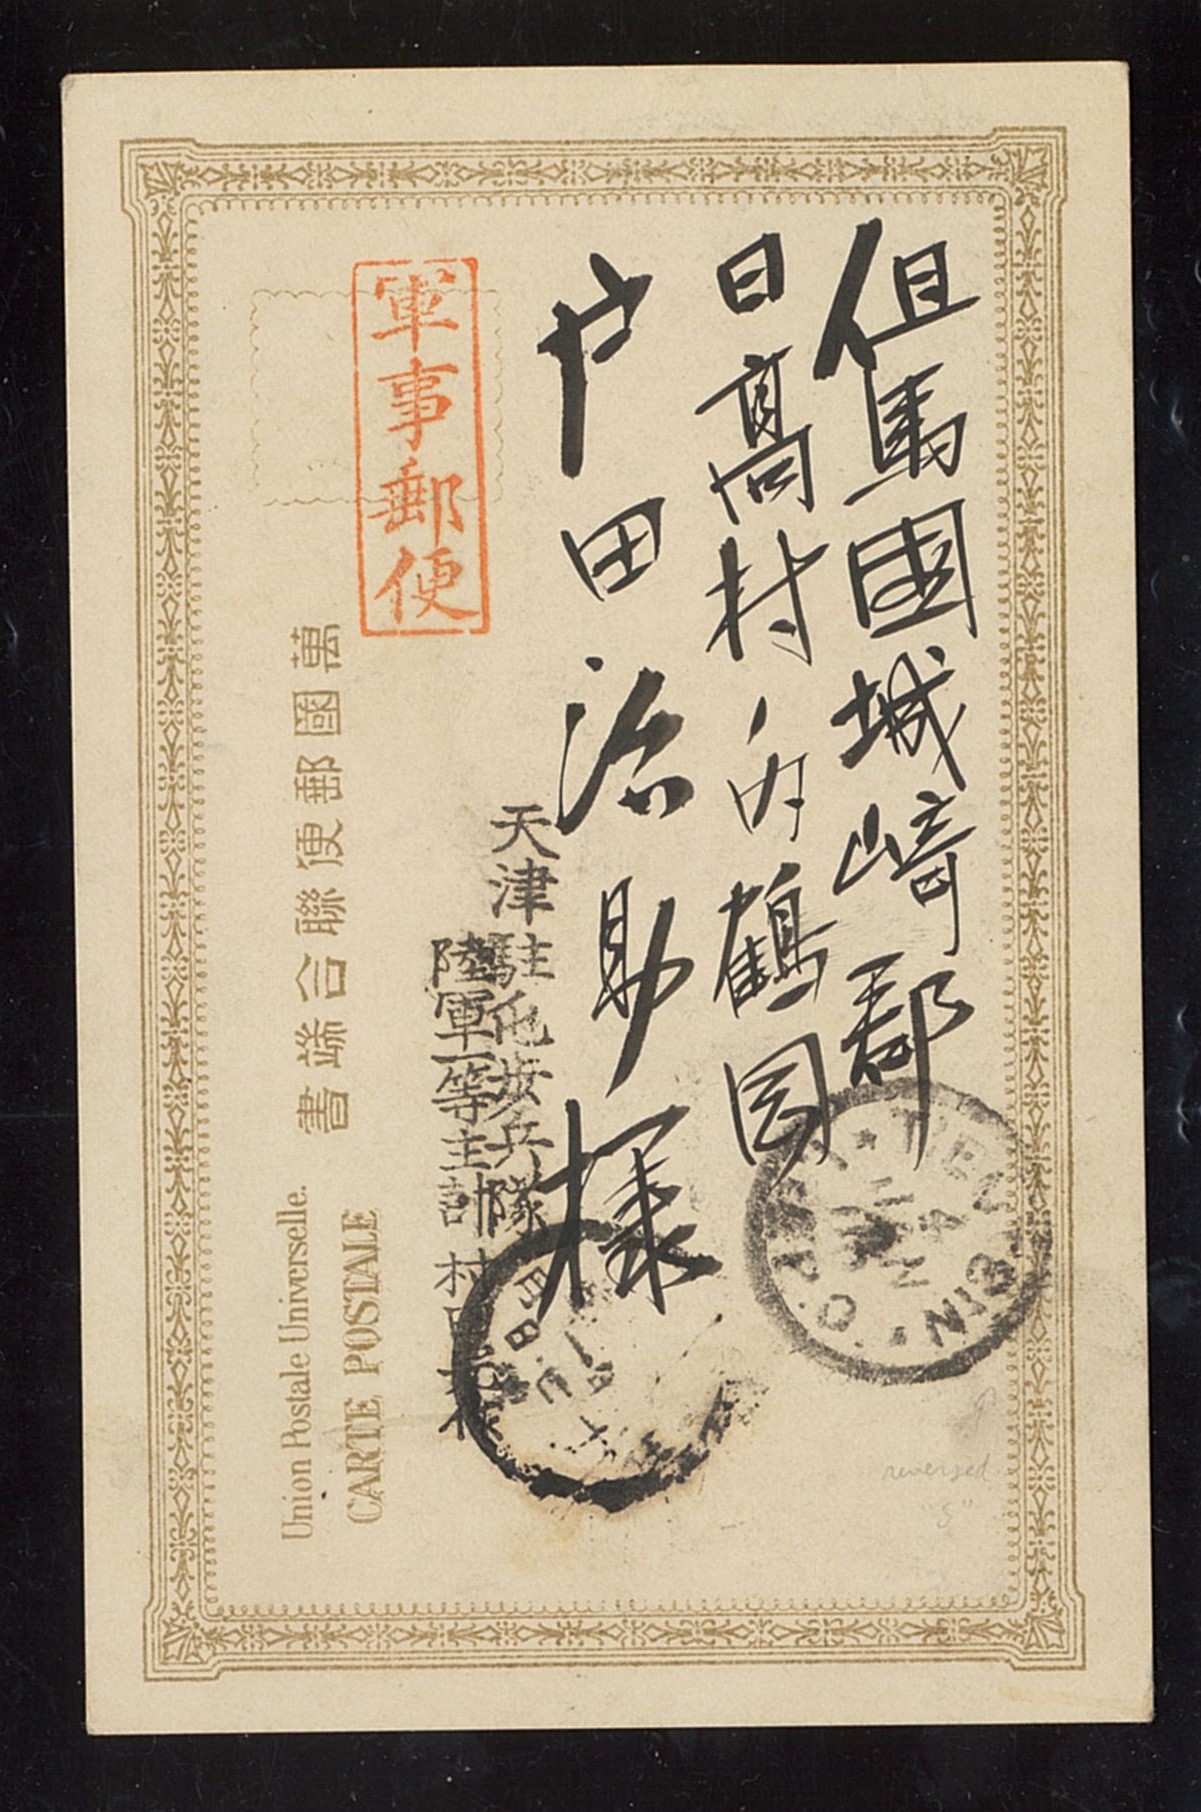 但馬國城崎郡
日高村ノ内鶴岡
戸田治助様
軍事郵便
天津駐屯歩兵隊
陸軍一等主計
萬國郵便聯合端書
Union Postale Universelle.
CARTE POSTALE
reversed
"S"